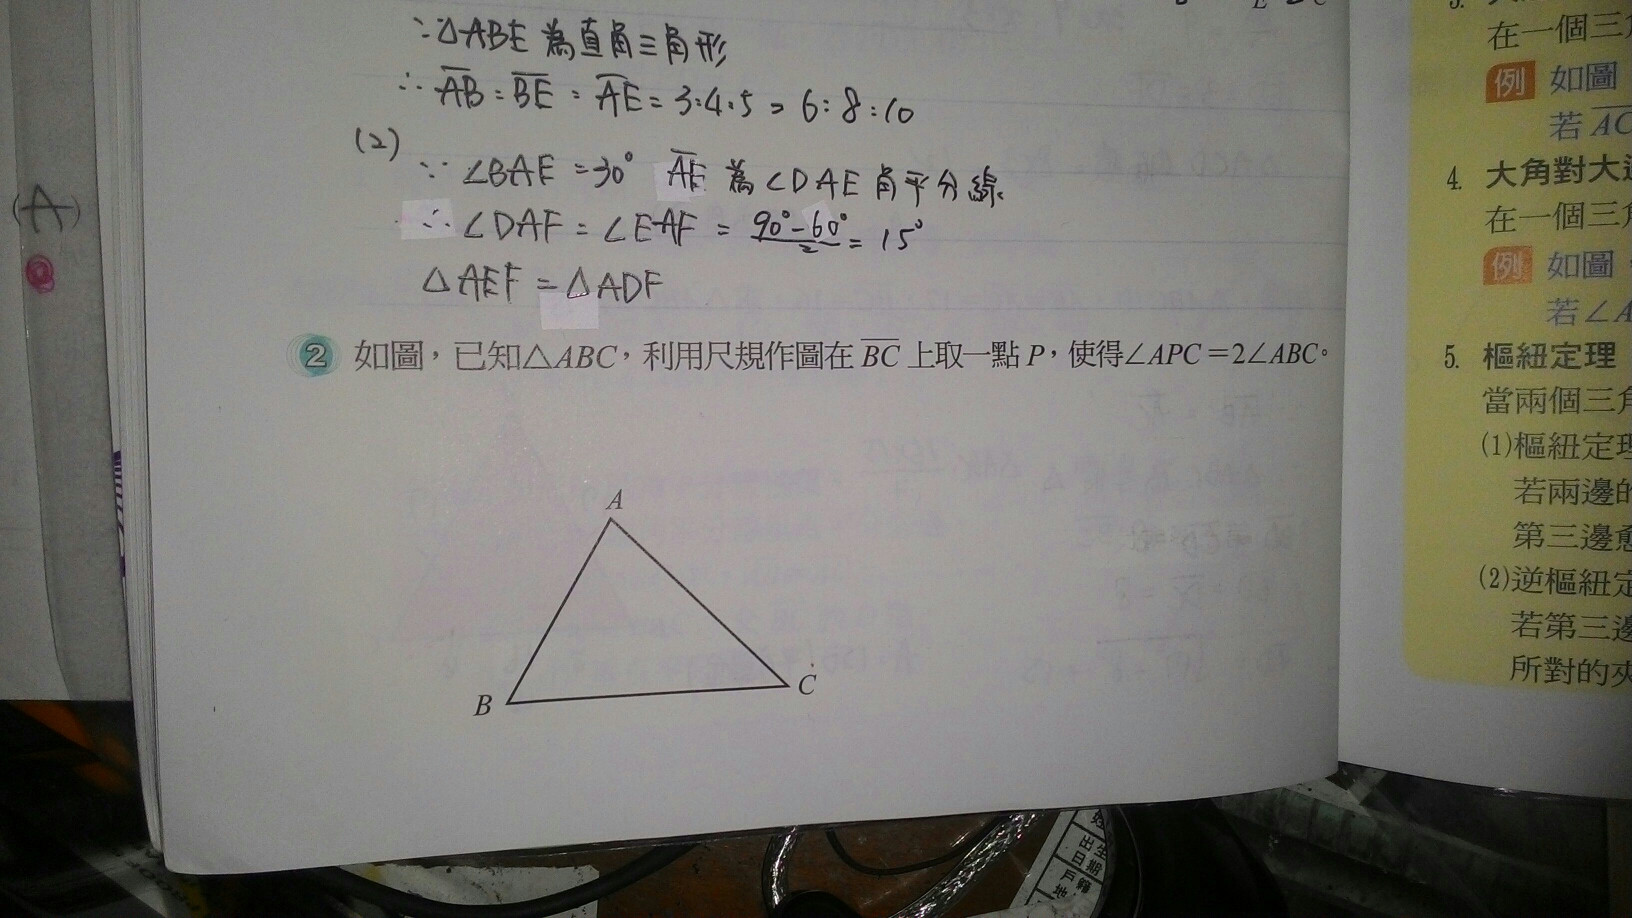 ∵△ABE 為直角三角形
∴ A̅B̅ : B̅E̅ : A̅E̅ = 3:4:5 = 6:8:10
(2)
∵ ∠BAE = 30° A̅E̅ 為 ∠DAE 角平分線
∴ ∠DAF = ∠EAF = (90°-60°)/2 = 15°
△AEF = △ADF
(A)
2 如圖,已知△ABC,利用尺規作圖在 B̅C̅ 上取一點 P,使得∠APC=2∠ABC。
A
B
C
在一個三
例 如圖
若 A̅C̅
4. 大角對大
在一個三
例 如圖
若∠A
5. 樞紐定理
當兩個三
(1)樞紐定
若兩邊的
第三邊愈
(2)逆樞紐定
若第三邊
所對的夾
出生
日期
戶籍
地